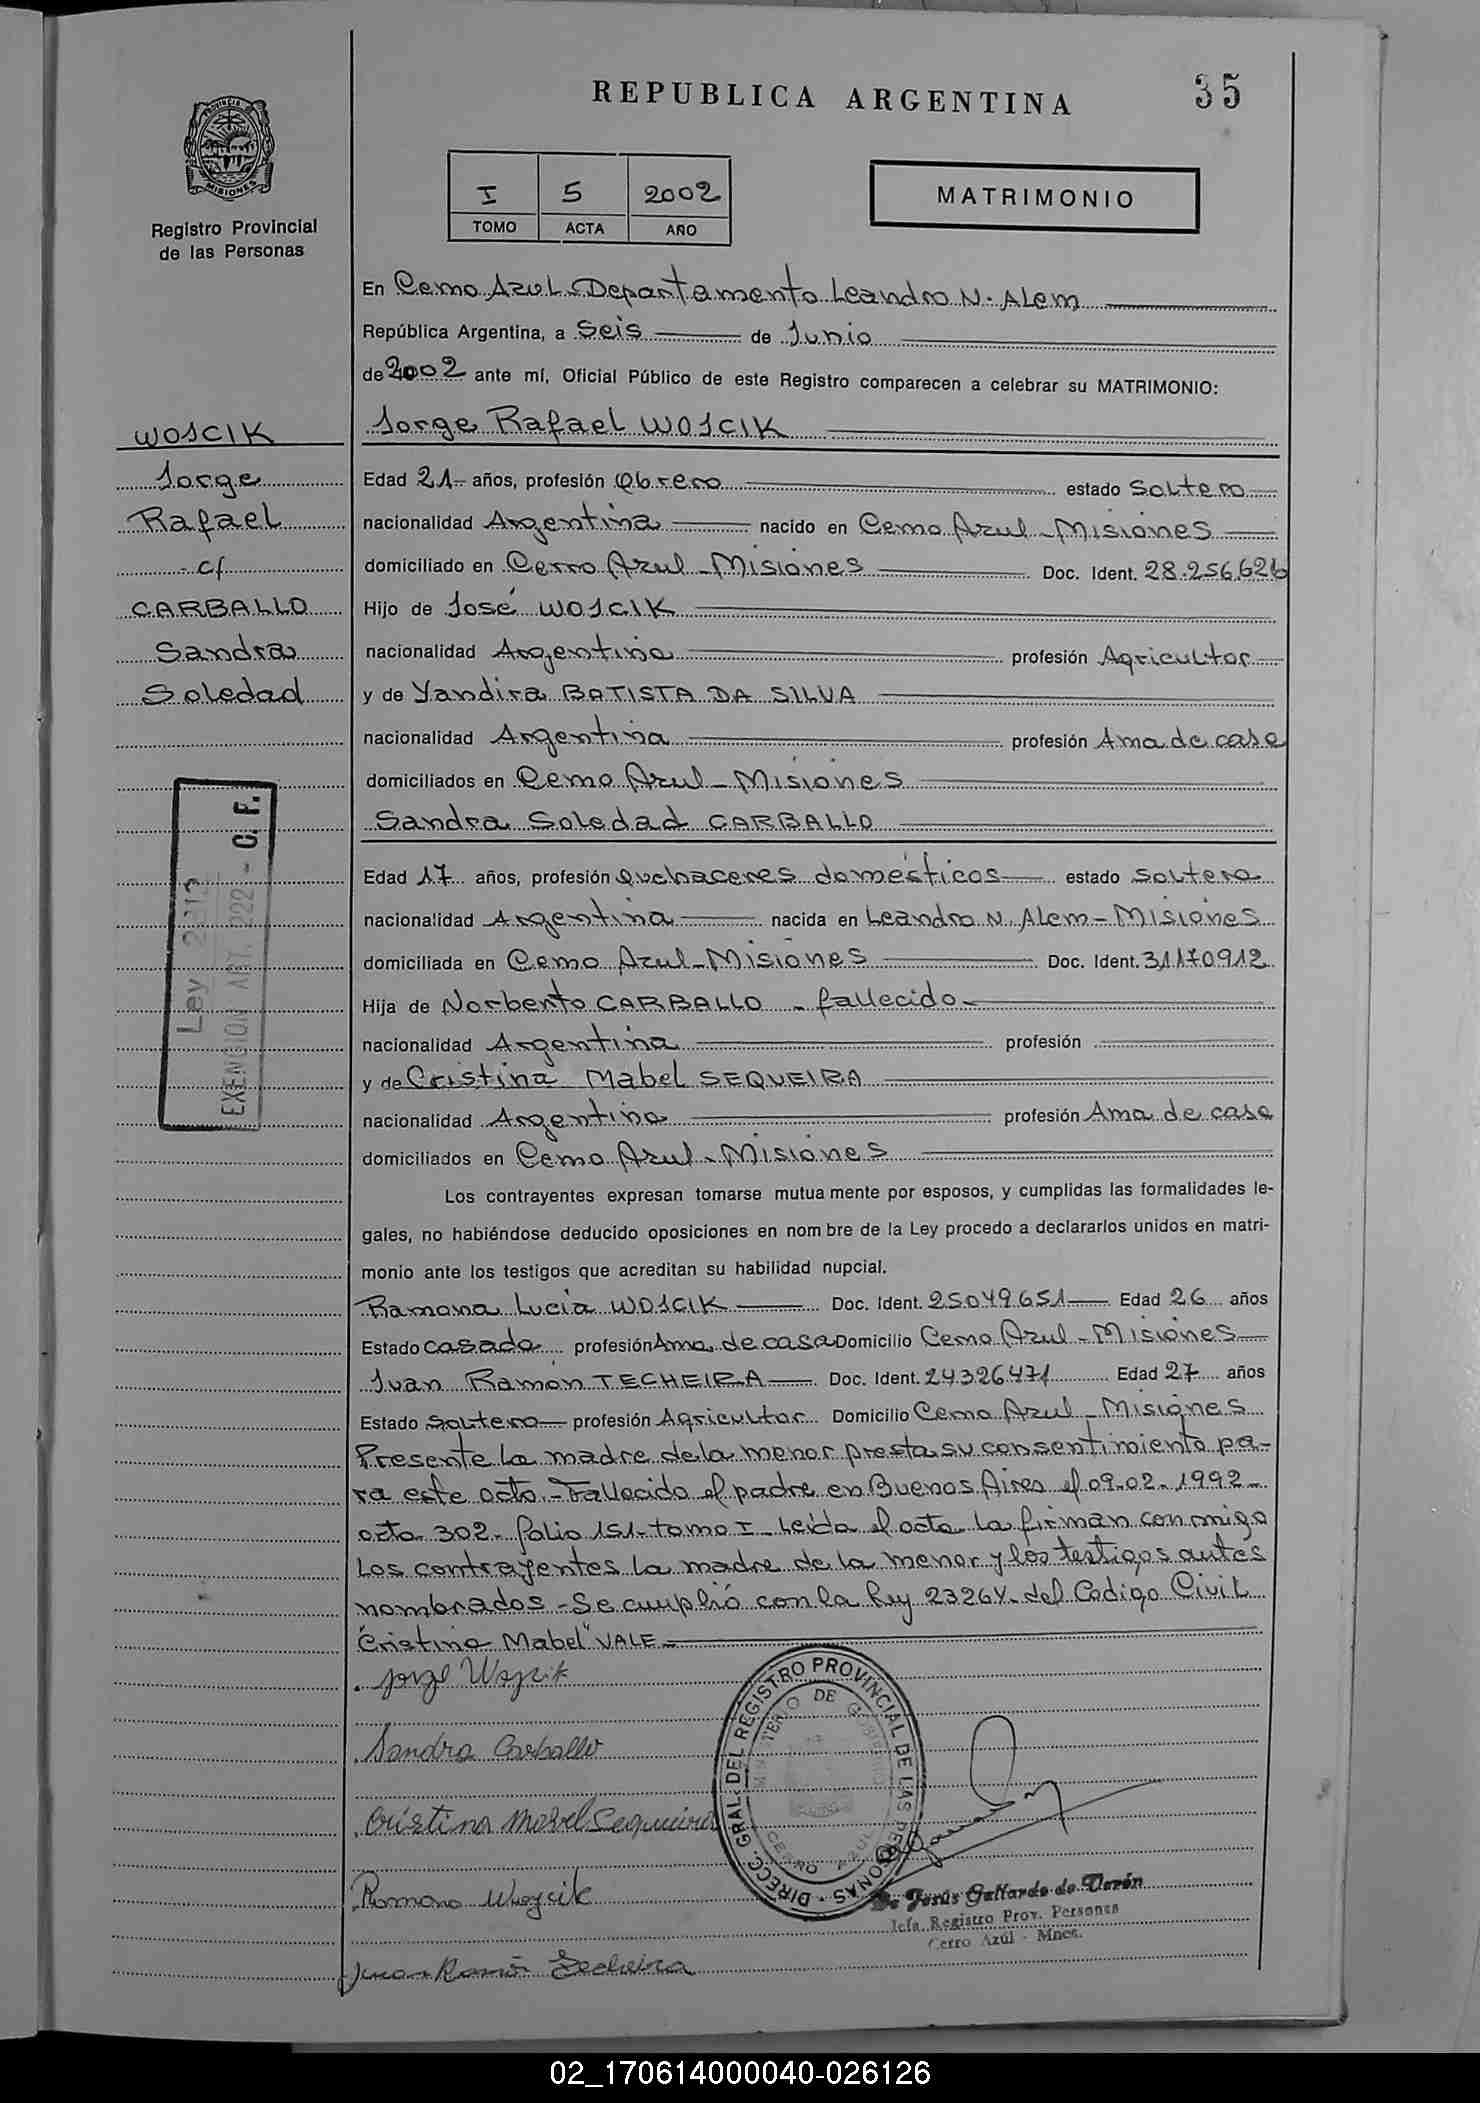 REPUBLICA ARGENTINA
35
PROVINCIA
MISIONES
Registro Provincial
de las Personas
I 5 2002
TOMO ACTA AÑO
MATRIMONIO
En Cerro Azul-Departamento Leandro N. Alem
República Argentina, a Seis de Junio
de 2002 ante mí, Oficial Público de este Registro comparecen a celebrar su MATRIMONIO:
Jorge Rafael WOJCIK
WOJCIK
Jorge
Rafael
cf
CARBALLO
Sandra
Soledad
Edad 21- años, profesión Obrero estado Soltero
nacionalidad Argentina nacido en Cerro Azul-Misiones
domiciliado en Cerro Azul-Misiones Doc. Ident. 28.256.626
Hijo de José WOJCIK
nacionalidad Argentina profesión Agricultor
y de Yandira BATISTA DA SILVA
nacionalidad Argentina profesión Ama de casa
domiciliados en Cerro Azul-Misiones
Sandra Soledad CARBALLO
Edad 17 años, profesión Quehaceres domésticos estado Soltera
nacionalidad Argentina nacida en Leandro N. Alem-Misiones
domiciliada en Cerro Azul-Misiones Doc. Ident. 31170912
Hija de Norberto CARBALLO - fallecido-
nacionalidad Argentina profesión
y de Cristina Mabel SEQUEIRA
nacionalidad Argentina profesión Ama de casa
domiciliados en Cerro Azul-Misiones
Ley
EXENCION ART. 222 - C. F.
Los contrayentes expresan tomarse mutua mente por esposos, y cumplidas las formalidades le-
gales, no habiéndose deducido oposiciones en nom bre de la Ley procedo a declararlos unidos en matri-
monio ante los testigos que acreditan su habilidad nupcial.
Ramona Lucia WOJCIK Doc. Ident. 25049651 Edad 26 años
Estado casada profesión Ama de casa Domicilio Cerro Azul-Misiones
Juan Ramón TECHEIRA Doc. Ident. 24326471 Edad 27 años
Estado Soltero profesión Agricultor Domicilio Cerro Azul-Misiones
Presente la madre de la menor presta su consentimiento pa-
ra este acto.-Fallecido el padre en Buenos Aires el 09-02-1992-
acta 302- folio 151-tomo I-Leida el acta la firman conmigo
los contrayentes la madre de la menor y los testigos antes
nombrados-Se cumplió con la ley 23264-del Codigo Civil
"Cristina Mabel" VALE-
Jorge Wojcik
Sandra Carballo
Cristina Mabel Sequeira
Ramona Wojcik
Juan Ramón Techeira
DIRECC. GRAL. DEL REGISTRO PROVINCIAL DE LAS PERSONAS
MINISTERIO DE GOBIERNO
CERRO AZUL
Jesús Gallardo de Verón
Jefa Registro Prov. Personas
Cerro Azúl - Mnes.
02_170614000040-026126